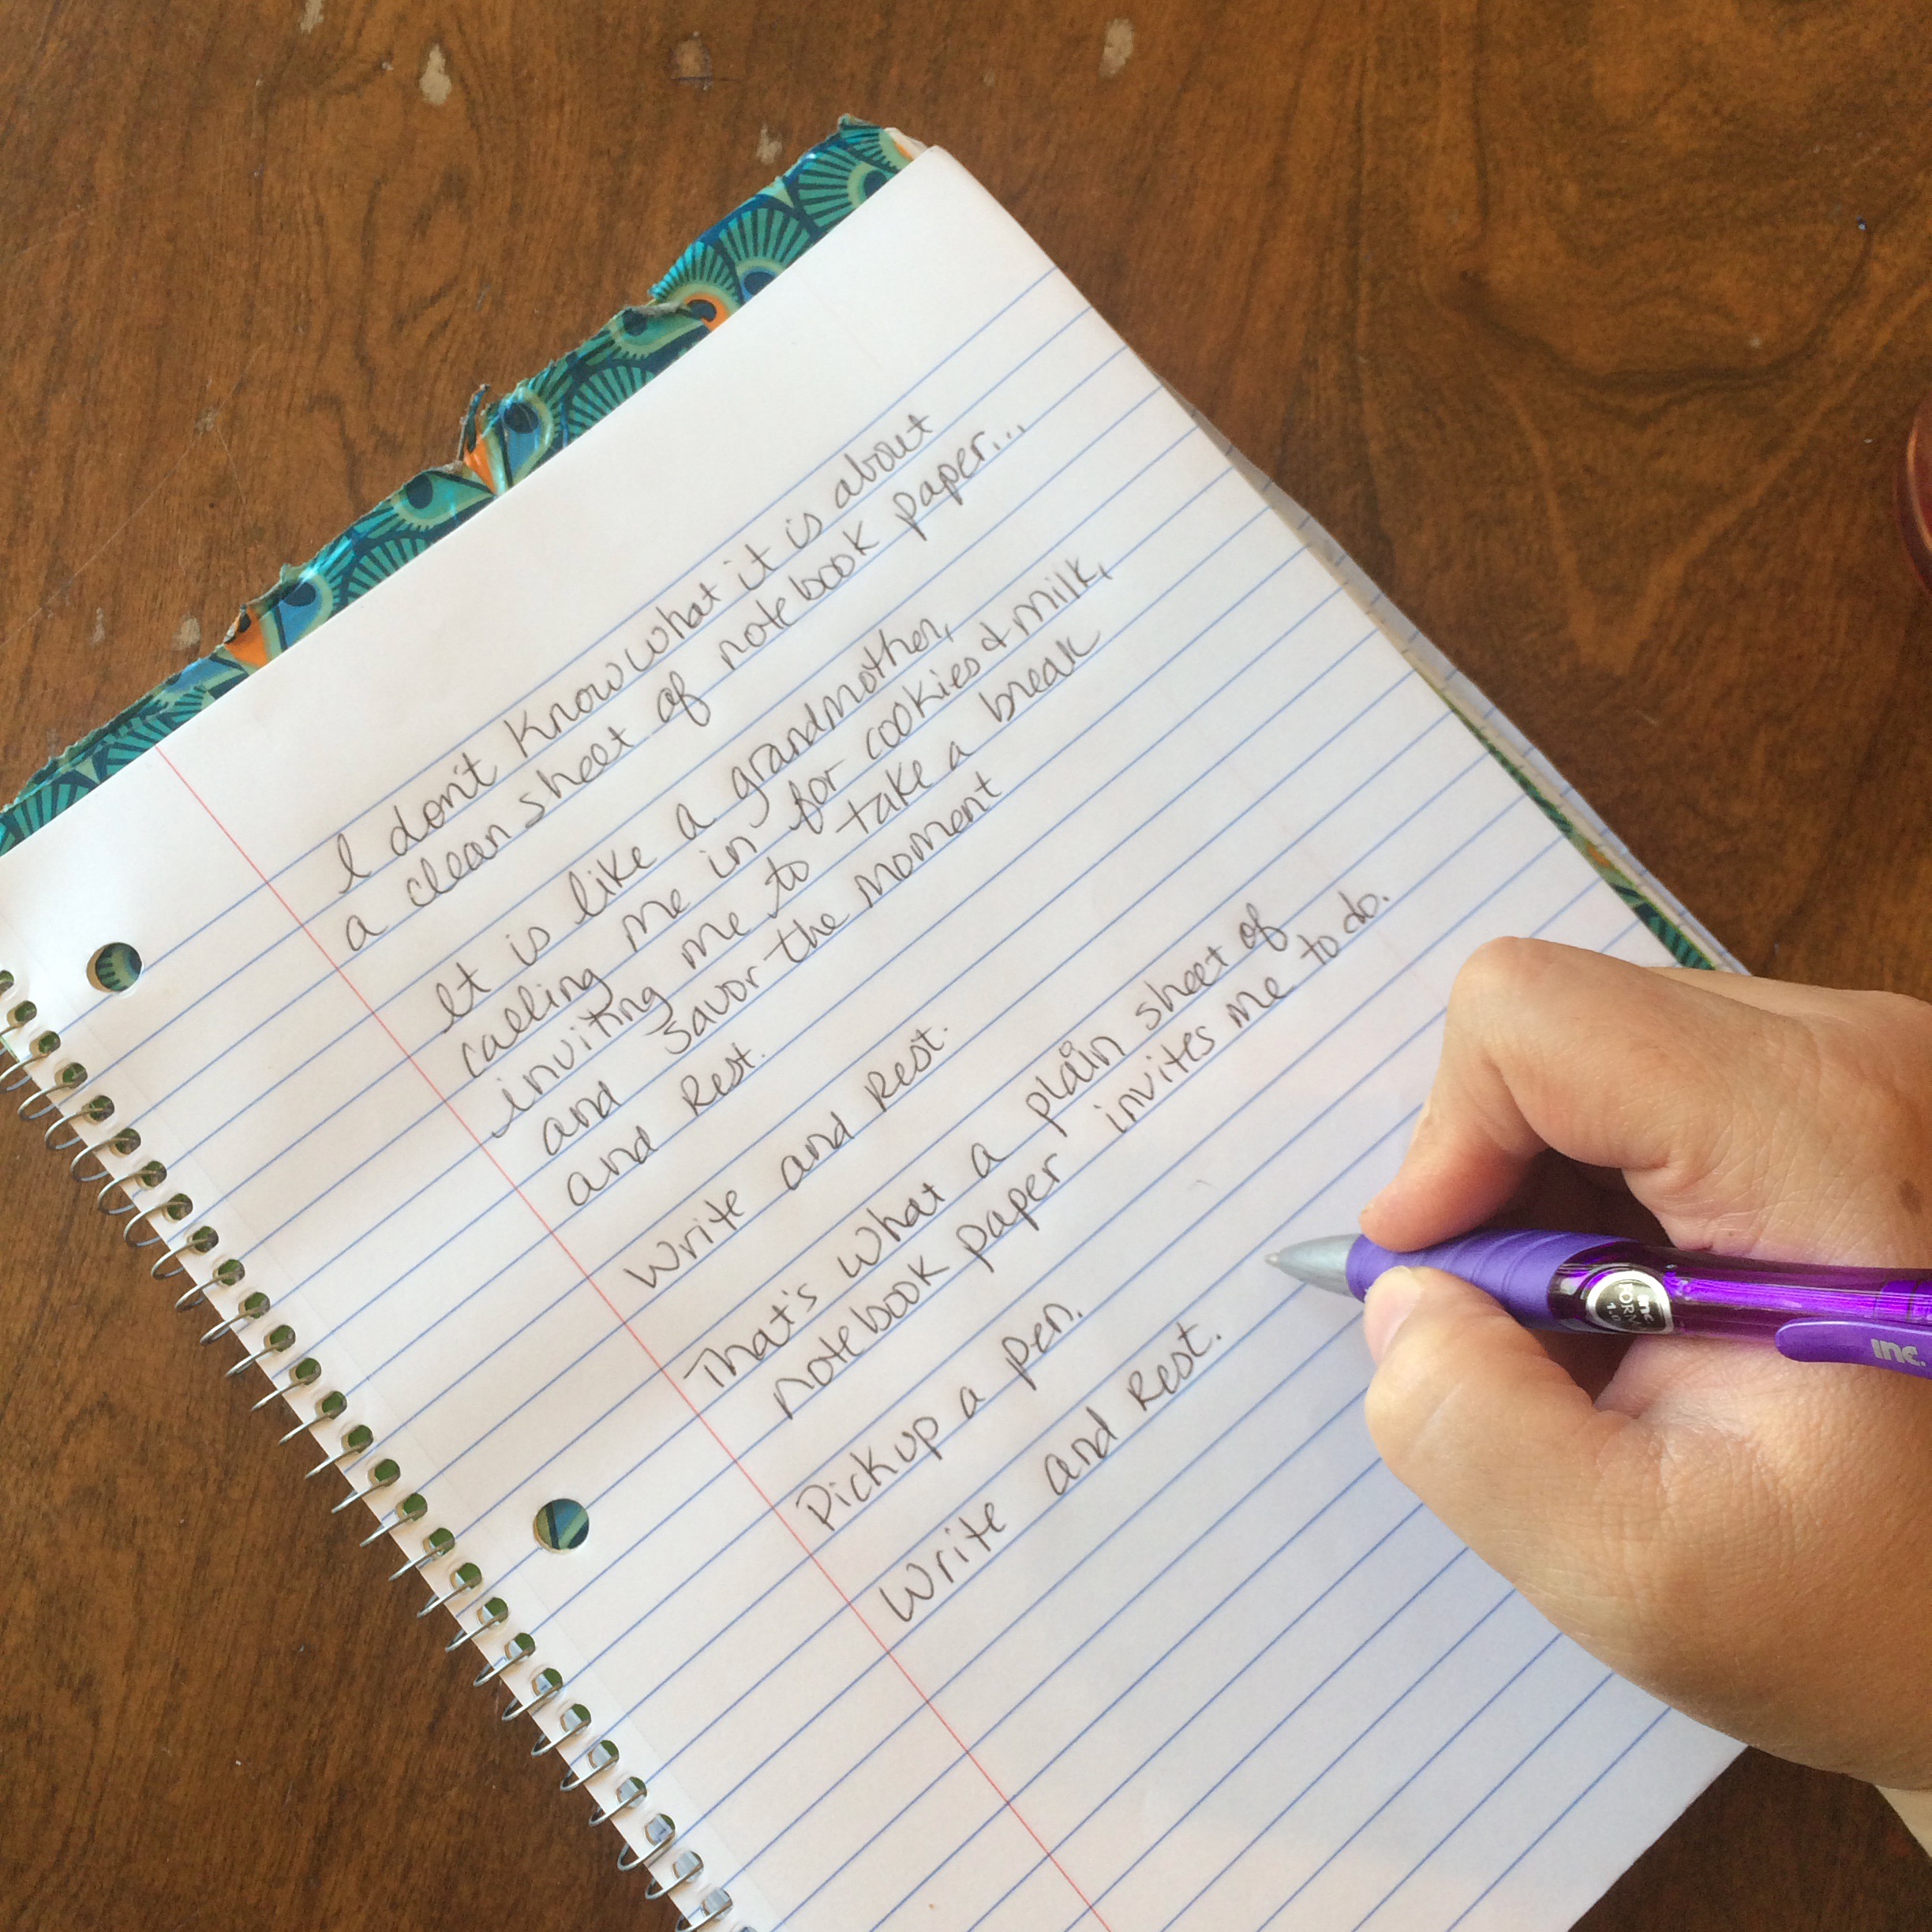 I don't know what it is about
a clean sheet of notebook paper...
It is like a grandmother,
calling me in for cookies & milk,
inviting me to take a break
and savor the moment
and Rest.
Write and Rest.
That's what a plain sheet of
notebook paper invites me to do.
Pick up a pen.
Write and Rest.
inc.
inc.